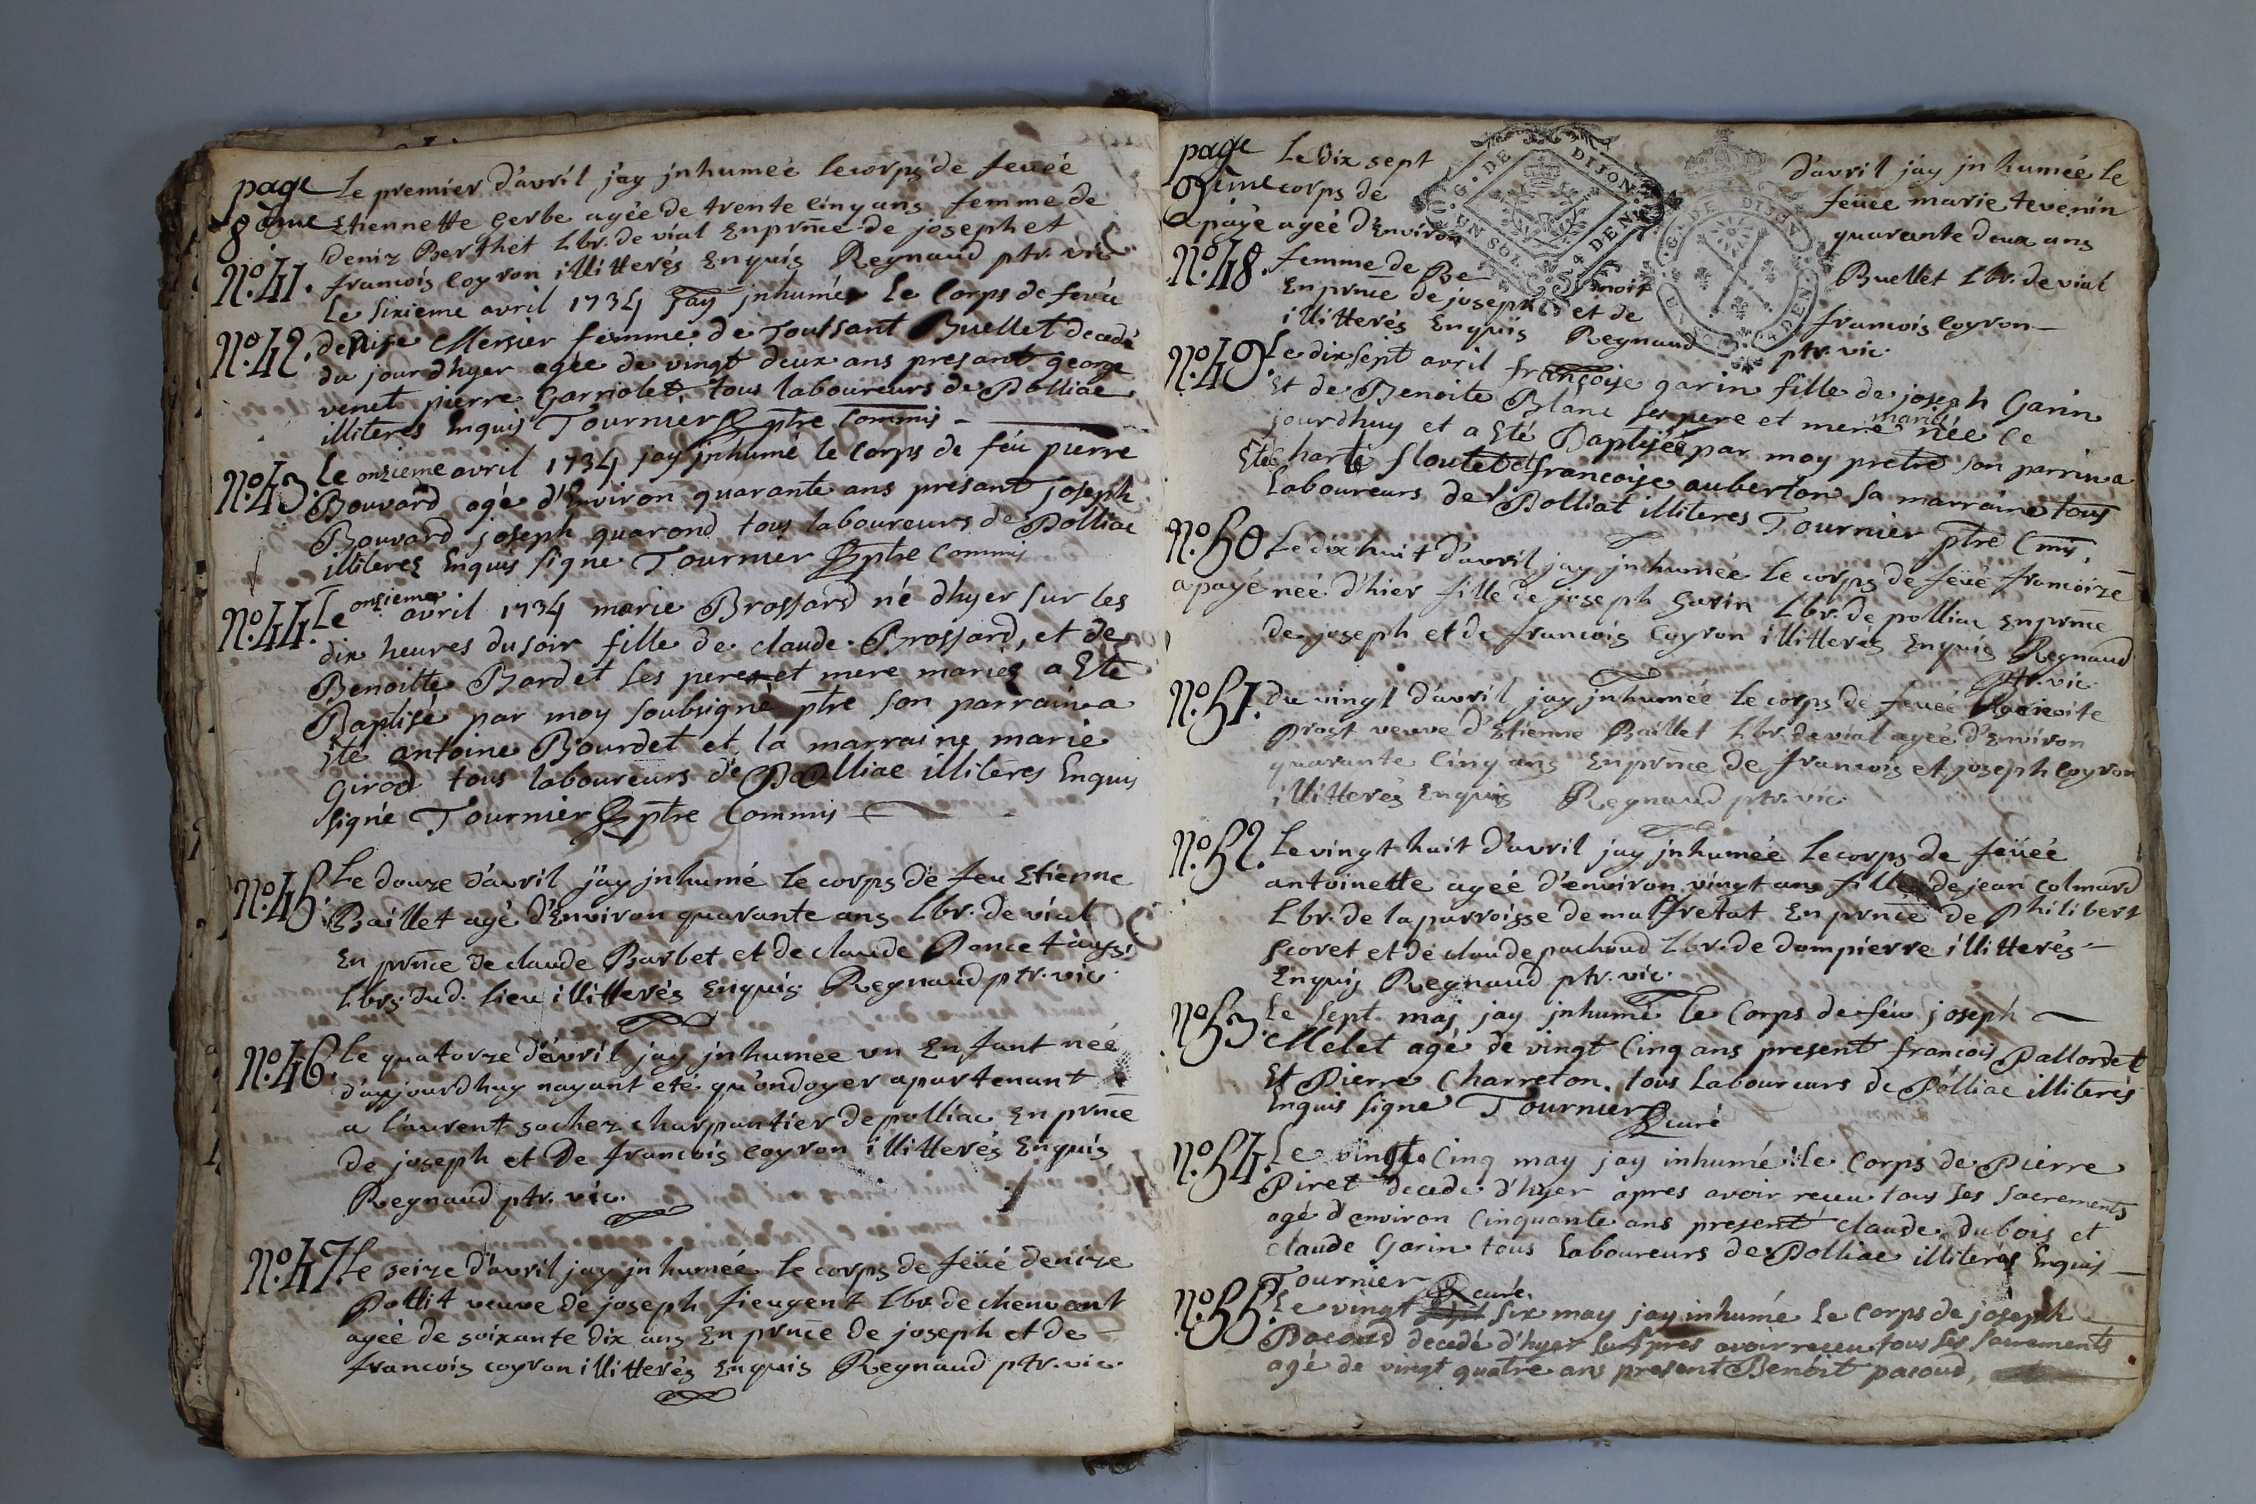 page
8eme
Le premier d'avril jay jnhumeé le corps de feuéé
Etiennette Gerbe ageé de trente cinq ans femme de
Deniz Berthet Lbr. de vial En prnce de joseph et
N.o 41. francois Coyron illitterés Enquis Regnaud ptr. vic
Le sixieme avril 1734 jay jnhumé Le Corps de feuë
N.o 42. denise Mersier femme de Toussant Buellet decedé
du jour d'hyer agée de vingt deux ans presant george
venet pierre Garriolet, tous laboureurs de Polliac
illiteres Enquis Tournier ptre Commis
N.o 43. Le onzieme avril 1734 jay jnhumé le Corps de féu pierre
Bouvard agé d'Environ quarante ans présant joseph
Bouvard joseph quarond tous laboureurs de Polliac
illiteres Enquis signe Tournier ptre Commis
N.o 44. Le onzieme avril 1734 marie Brossard né d'hyer sur les
dix heures du soir fille de claude Brossard, et de
Benoitte Bardet ses pere et mere mariés a Eté
Baptisé par moy soubsigné ptre son parrain a
Eté antoine Bourdet et la marraine marie
Girod tous laboureurs de Polliac illiteres Enquis
signé Tournier ptre Commis
N.o 45. Le douze d'avril j'ay jnhumé le corps de feu Etienne
Baillet agé d'Environ quarante ans Lbr. de vial
En prnce de claude Barbet et de claude Poncet aussi
Lbrs. dud. lieu illitterés Enquis Regnaud ptr. vic.
N.o 46. Le quatorze d'avril jay jnhumee un Enfant née
d'aujourdhuy nayant eté qu'ondoyer apartenant
a laurent sochez charpantier de polliac En prnce
de joseph et De francois coyron illitterés Enquis
Regnaud ptr. vic.
N.o 47. Le seize d'avril jay jnhumée le corps de feüé denize
Pottit veuve de joseph fieugent Lbr. de chenvent
ageé de soixante dix ans En prnce de joseph et de
francois coyron illitterés Enquis Regnaud ptr. vic.
page
9eme
Le Dix sept d'avril jáy jnhumeé le
corps de feüee marie tevenin
apayé ageé d'Environ quarante deux ans
N.o 48. femme de Benoit Buellet Lbr. de vial
En prnce de joseph et de francois Coyron
illitterés Enquis Regnaud ptr. vic.
G. DE DIJON UN SOL 4 DEN.
G. DE DIJON
N.o 49. Le dix sept avril françoise garin fille de joseph Garin
Et de Benoite Blanc ses pere et mere mariés née ce
jourdhuy et a Eté Baptisée par moy pretre son parrin a
Eté charle floutet et françoise auberton sa marraine tous
Laboureurs de Polliat illiteres Tournier ptre Cmis.
N.o 50. Le dix huit d'avril jay jnhumée le corps de feüé francoize
apayé née d'hier fille de joseph Garin Lbr. de polliac En prnce
de joseph et de francois Coyron illitterés Enquis Regnaud
ptr. vic.
N.o 51. du vingt d'avril jay jnhumée le corps de feueé Benoite
Prost veuve d'Etienne Baillet Lbr. de vial ageé d'Environ
quarante Cinq ans En prnce de francois et joseph Coyron
illitterés Enquis Regnaud ptr. vic.
N.o 52. Le vingt huit d'avril jay jnhumée le corps de feüéé
antoinette ageé d'environ vingt ans fille de jean colmard
Lbr. de la parroisse de malfretat En prnce de Philibert
scoret et de claude pachoud Lbr. de dompierre illitterés
Enquis Regnaud ptr. vic.
N.o 53. Le sept maj jay jnhumé Le Corps de féu joseph
Melet agé de vingt Cinq ans present francois Pallordet
Et Pierre Charreton, tous Laboureurs de Polliac illiterés
Enquis signe Tournier curé
N.o 54. Le vingt Cinq may jay inhumé le Corps de Pierre
Piret decedé d'hyer apres avoir receu tous ses sacrements
agé d'environ Cinquante ans present claude Dubois et
claude Garin tous Laboureurs de Polliac illiterés Enquis
Tournier curé.
N.o 55. Le vingt six may jay inhumé Le Corps de joseph
Pacoud decedé d'hyer apres avoir receu tous ses sacrements
agé de vingt quatre ans present Benoit pacoud,